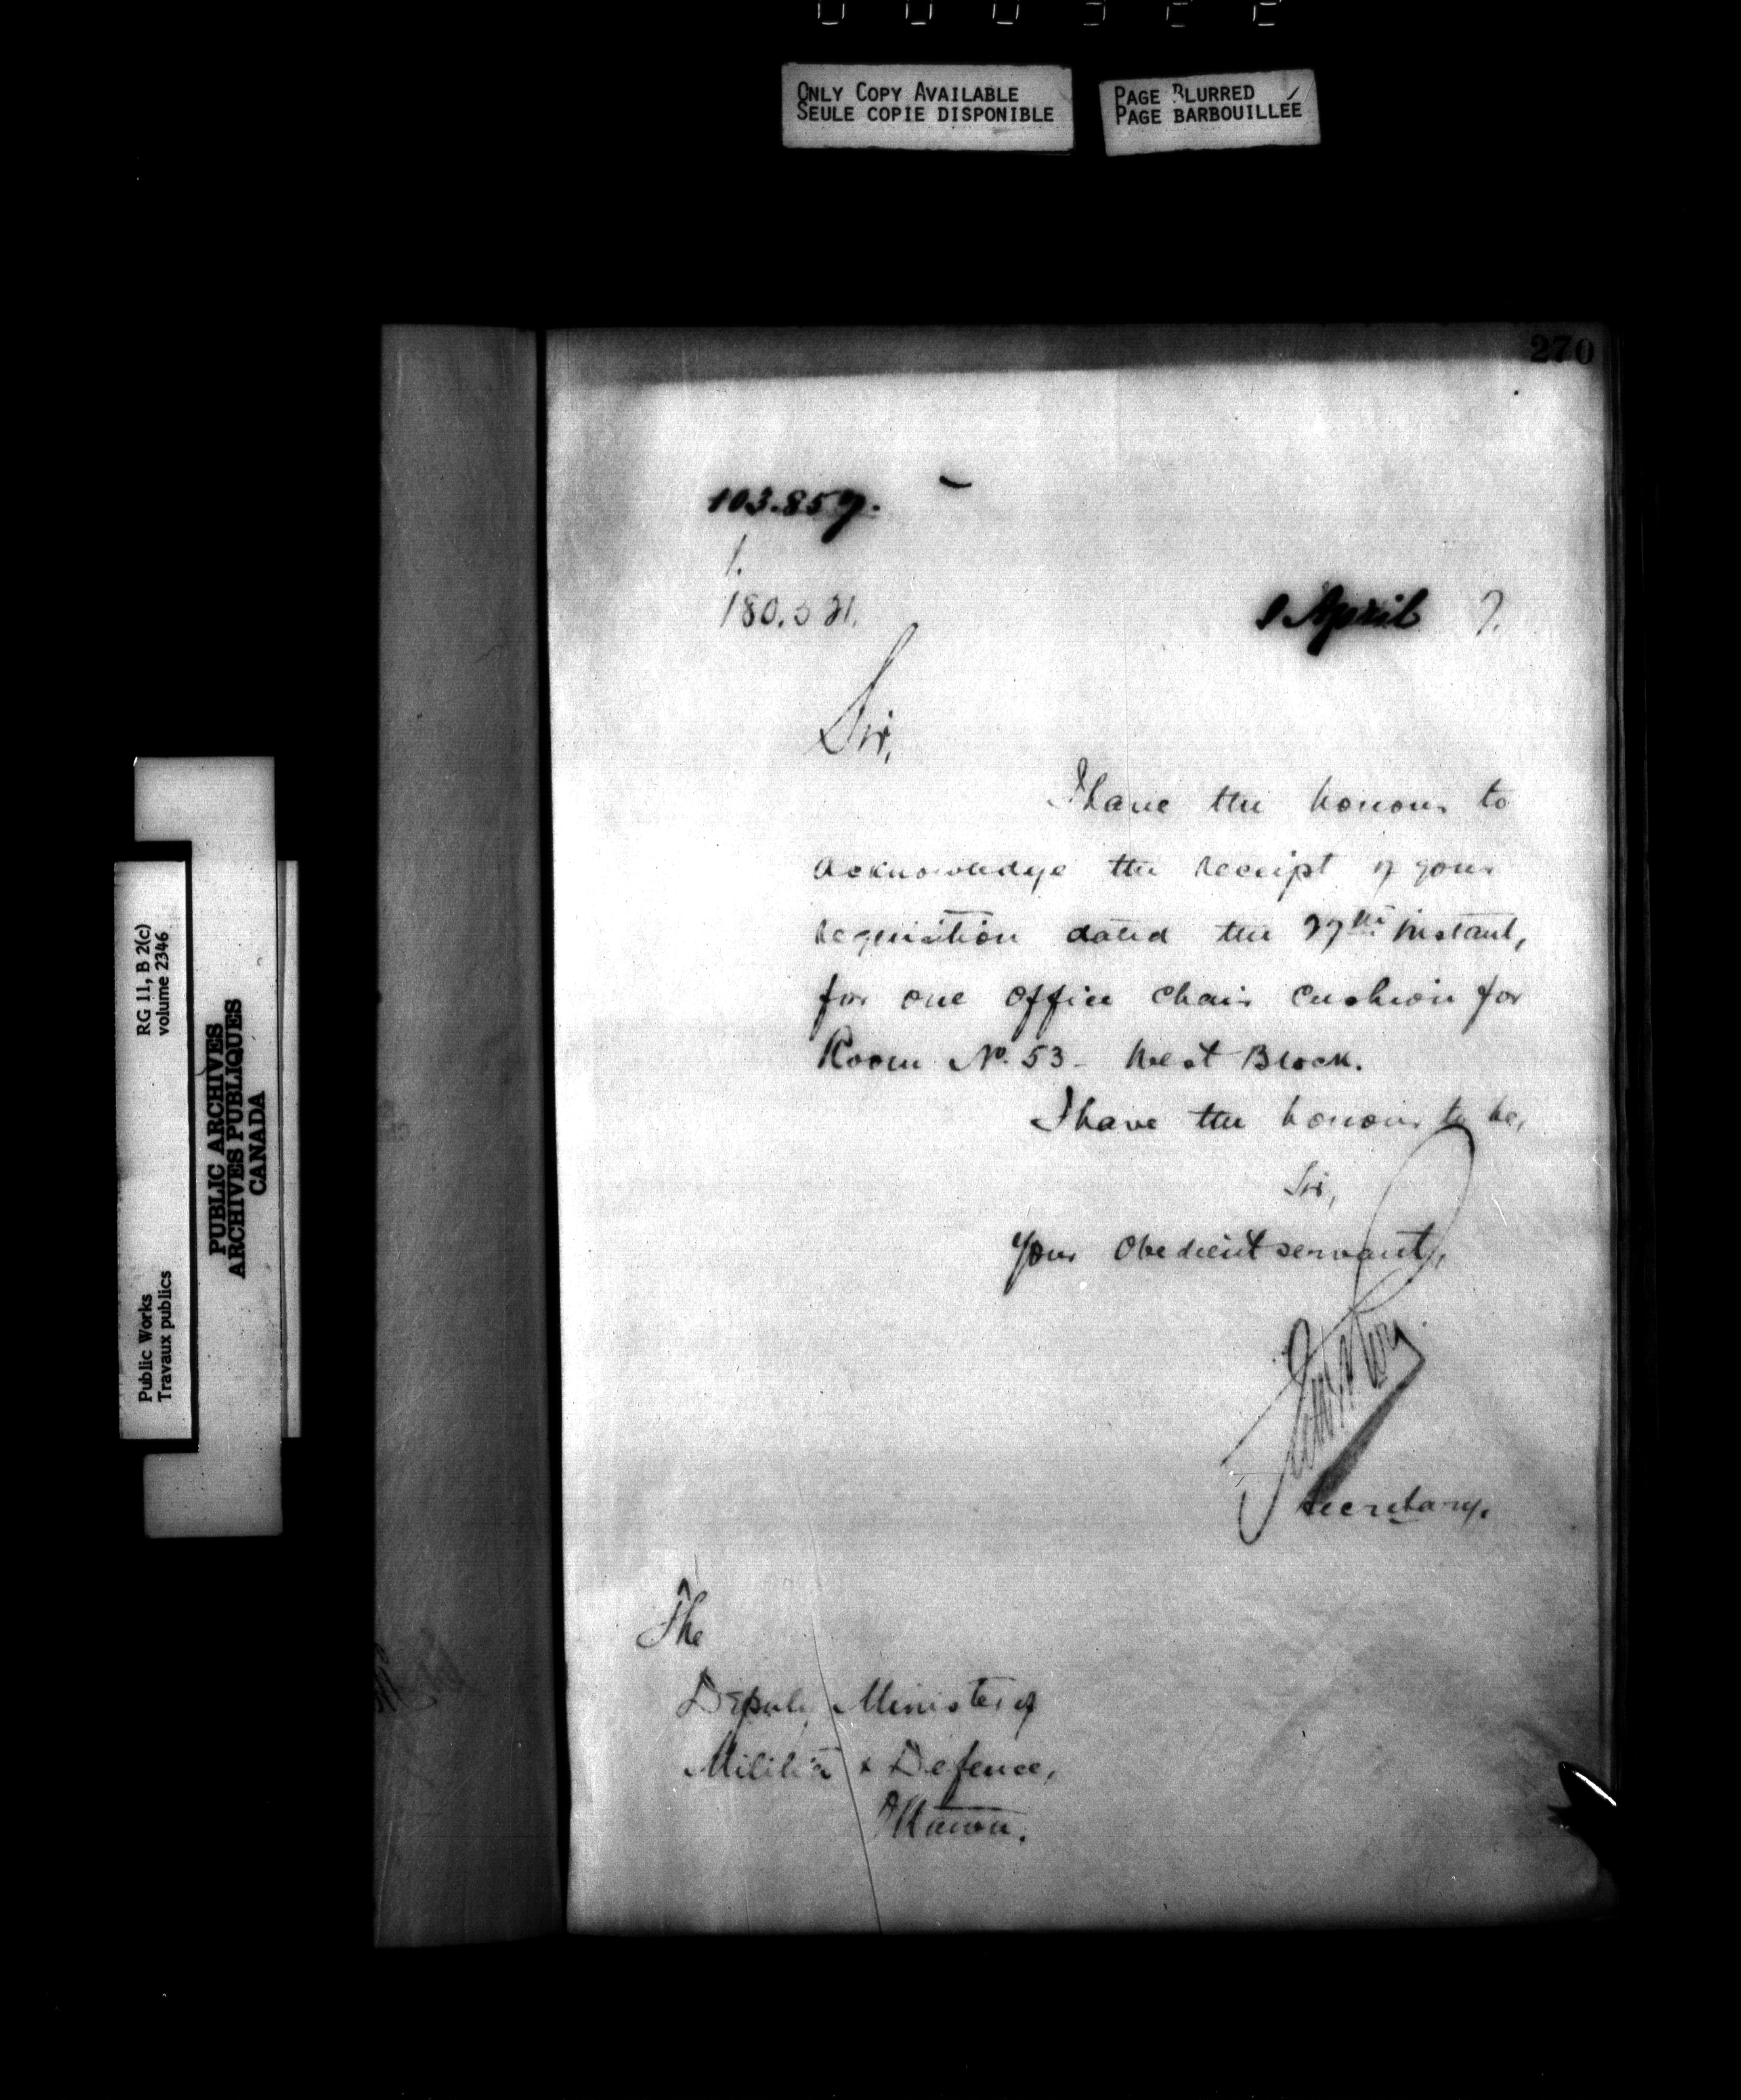 ONLY COPY AVAILABLE
SEULE COPIE DISPONIBLE
PAGE BLURRED
PAGE BARBOUILLÉE
270
103.857.
1.
180.521.
April 7.
Sir,
I have the honour to
acknowledge the receipt of your
requisition dated the 27th instant,
for one office chair cushion for
Room No. 53 - West Block.
I have the honour to be,
Sir,
Your Obedient servant,
Secretary.
The
Deputy Minister of
Militia & Defence,
Ottawa.
RG 11, B 2(c)
volume 2346
Public Works
Travaux publics
PUBLIC ARCHIVES
ARCHIVES PUBLIQUES
CANADA